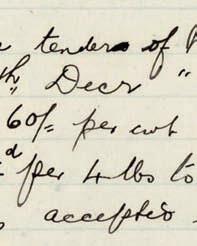 tenders of
th Decr "
60/- per cwt
d per 4 lbs to
accepted